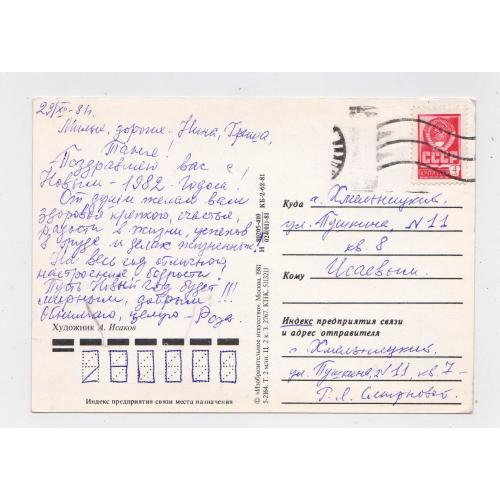 29/XII-81г.
Милые, дорогие - Нина, Гриша,
Таня!
Поздравляю вас с
Новым - 1982 годом!
От души желаю вам
здоровья крепкого, счастья,
радости в жизни, успехов
в труде и делах жизненных.
На весь год отличного
настроения, бодрости!
Пусть Новый год будет!!!
мирным, добрым!!!
Обнимаю, целую - Роза.
Художник А. Исаков
Индекс предприятия связи места назначения
© «Изобразительное искусство». Москва. 1981
КБ-2-62-81
СССР
Куда г. Хмельницкий,
ул. Пушкина, N 11
кв. 8
Кому Исаевым
Индекс предприятия связи
и адрес отправителя
г. Хмельницкий,
ул. Пушкина, N 11, кв. 7 -
Р. Я. Смирновой